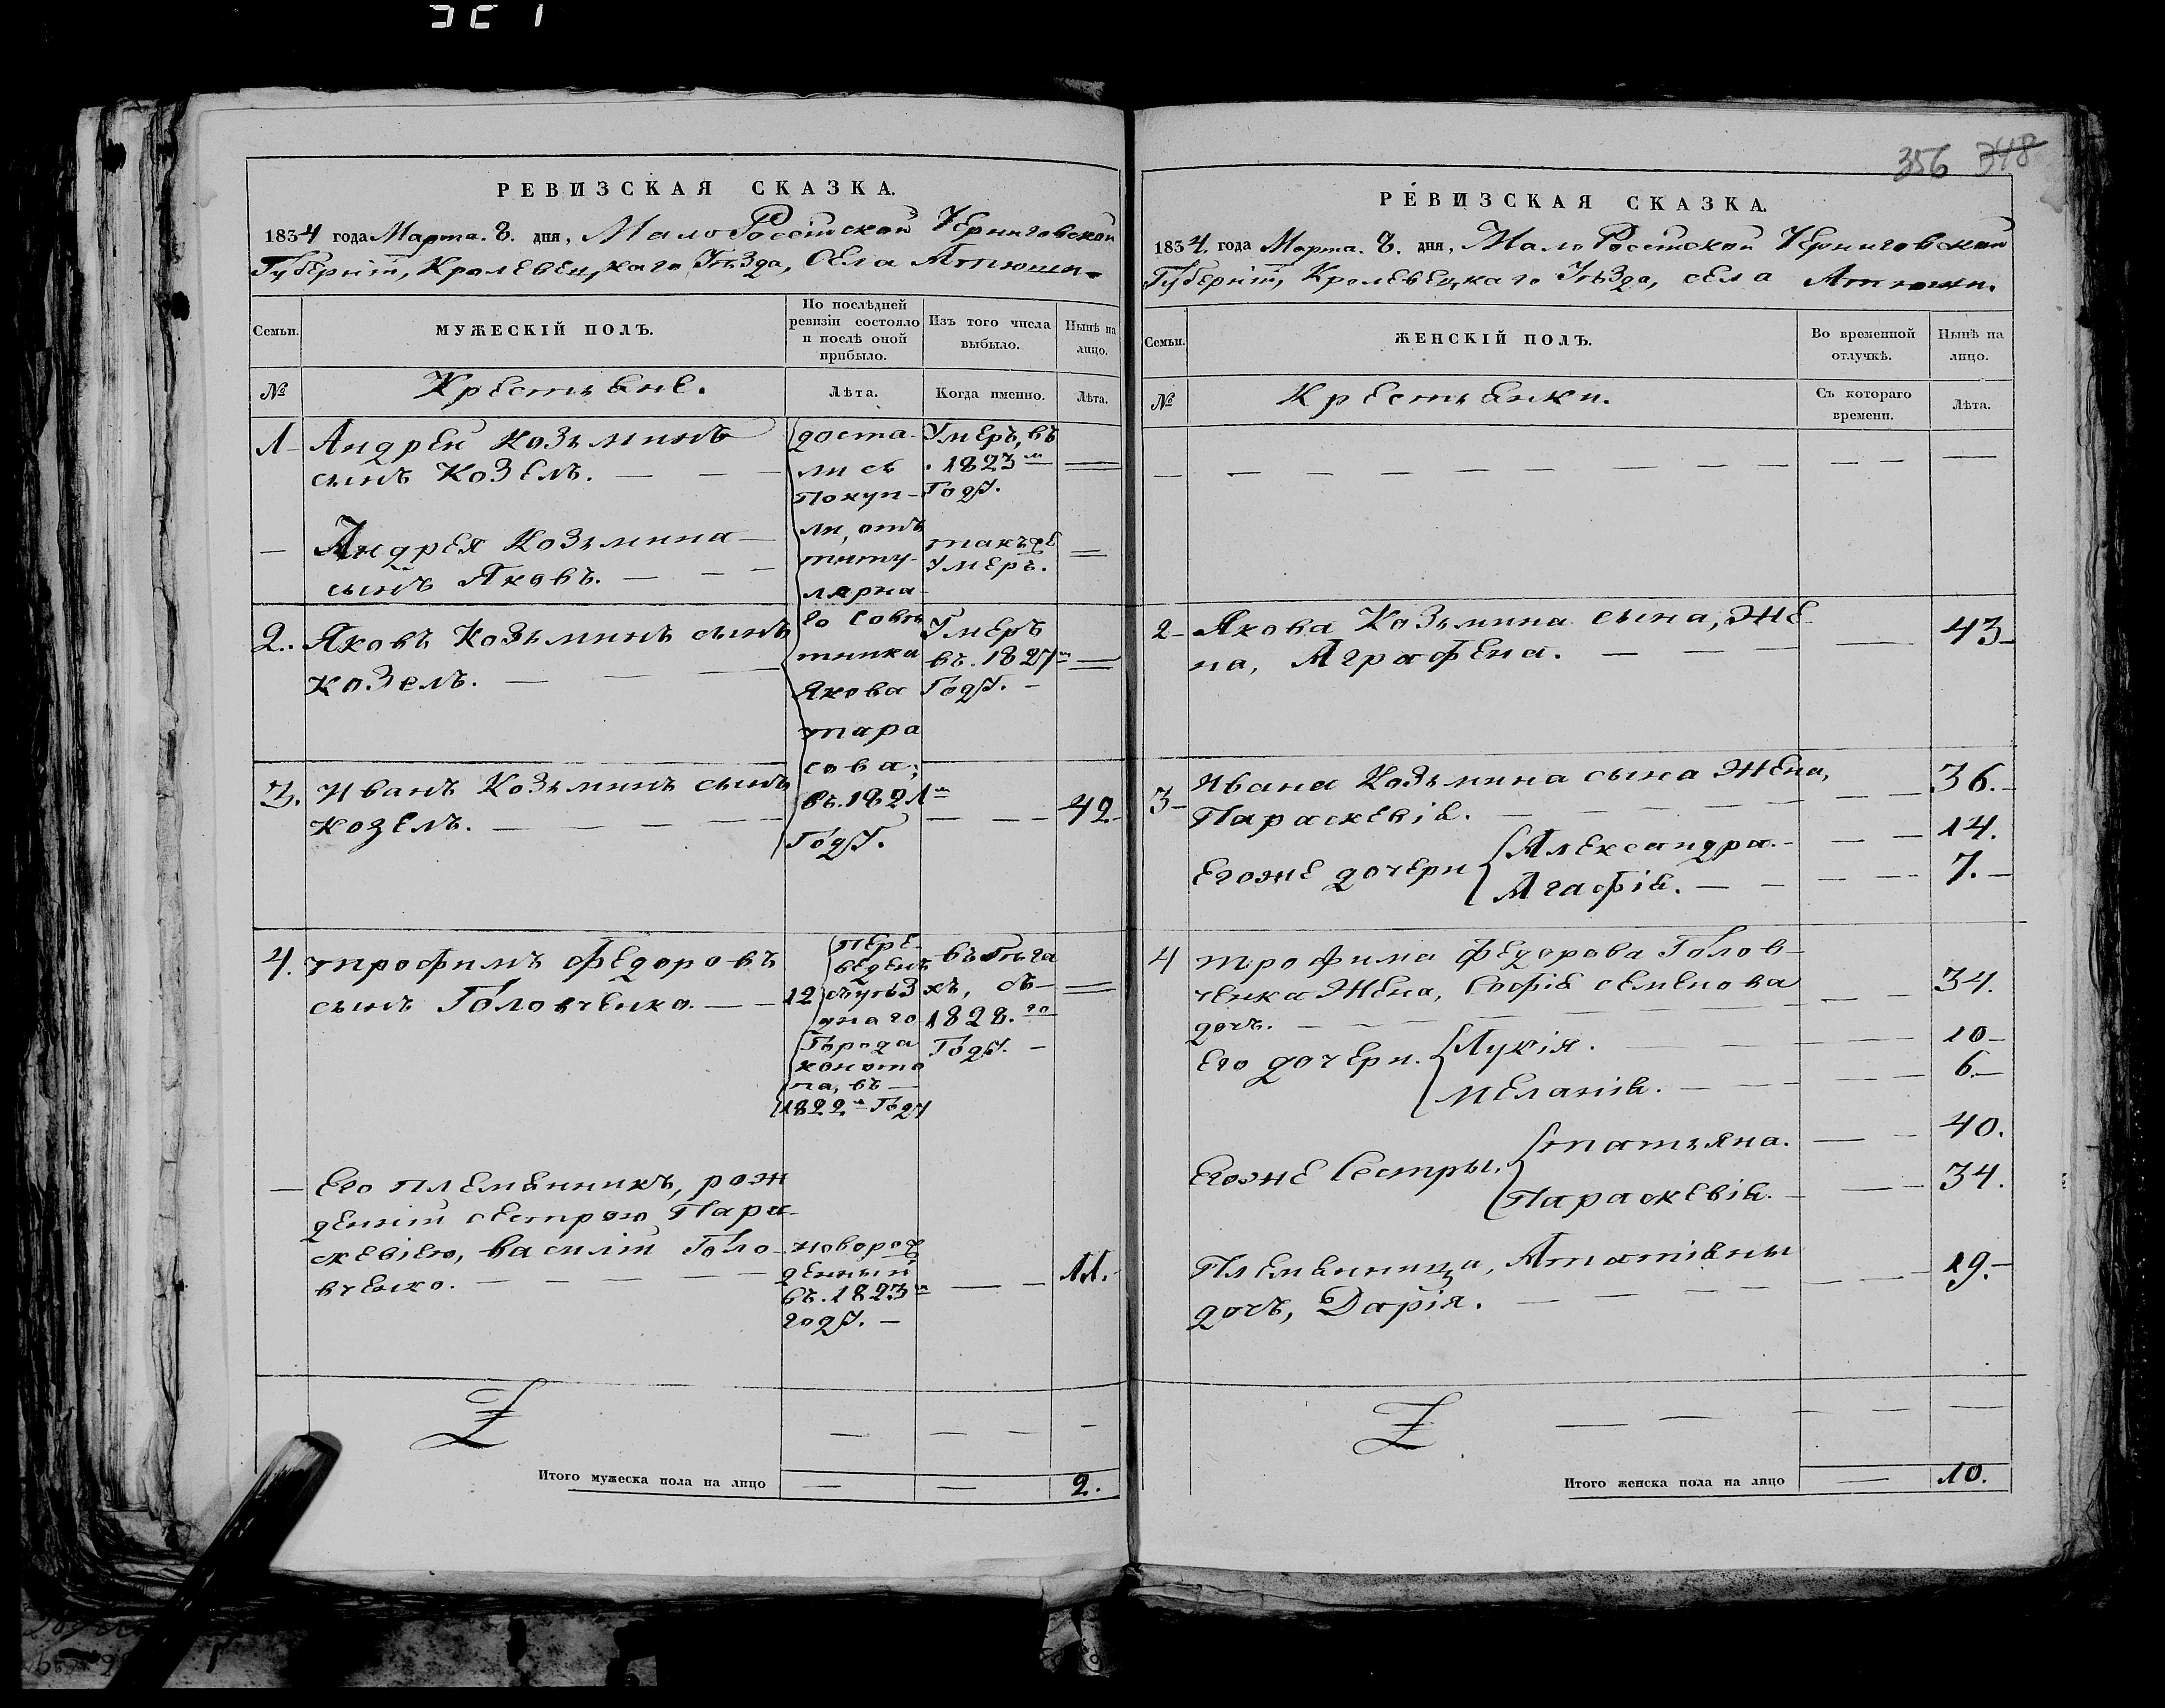 356 348
РЕВИЗСКАЯ СКАЗКА.
1834 года Марта. 8. дня, МалоРосстйской Черниговской
Губернiи, Кролевецкаго Уѣзда, Села Атюши.
Семьи.
МУЖЕСКІЙ ПОЛЪ.
По послѣдней ревизіи состояло и послѣ оной прибыло.
Изъ того числа выбыло.
Нынѣ на лицо.
№
Крестьяне.
Лѣта.
Когда именно.
Лѣта.
1 Андрей Козьминъ
сынъ Козелъ.
Умеръ, въ
1823м
Году.
— Андрея Козьмина
сынъ Яковъ.
такъже
Умеръ.
2. Яковъ Козьминъ сынъ
козелъ.
Умеръ
въ. 1827м
Году.
3. Иванъ Козьминъ сынъ
козелъ.
42
доста-
лись
покуп-
ли, отъ
титу-
лярна-
го Совѣ
тника
Якова
тара
сова;
въ. 1821м
Году.
4. трофимъ Федоровъ
сынъ Головченко.
12
пере-
веденъ
съуѣз
днаго
Города
коното
па, въ
1822м Году
въбѣга
хъ, съ
1828.го
Году.
— Его племянникъ, рож
денiй сестрою Пара-
скевiею, василiй Голо-
вченко.
новорож
денный
въ. 1823м
году.
11.
Итого мужеска пола на лицо
2.
РЕВИЗСКАЯ СКАЗКА.
1834. года Марта. 8. дня, МалоРосстйской Черниговской
Губернiи, Кролевецкаго Уѣзда, села Атюши.
Семьи.
ЖЕНСКІЙ ПОЛЪ.
Во временной отлучкѣ.
Нынѣ на лицо.
№
Крестьянки.
Съ котораго времени.
Лѣта.
2 Якова Козьмина сына, Же-
на, Аграфена.
43
3 Ивана Козьмина сына Жена,
Параскевiя.
36.
Егоже дочери
Александра.
14.
Агафiя.
7.
4 трофима Федорова Голов-
ченка Жена, Софiя семенова
дочь.
34.
Его дочери.
Лукiя.
10
Меланiя.
6.
Егоже Сестры,
татьяна.
40.
Параскевiя.
34.
Племянница, Ататiяны
дочь, Дарiя.
19.
Итого женска пола на лицо
10.